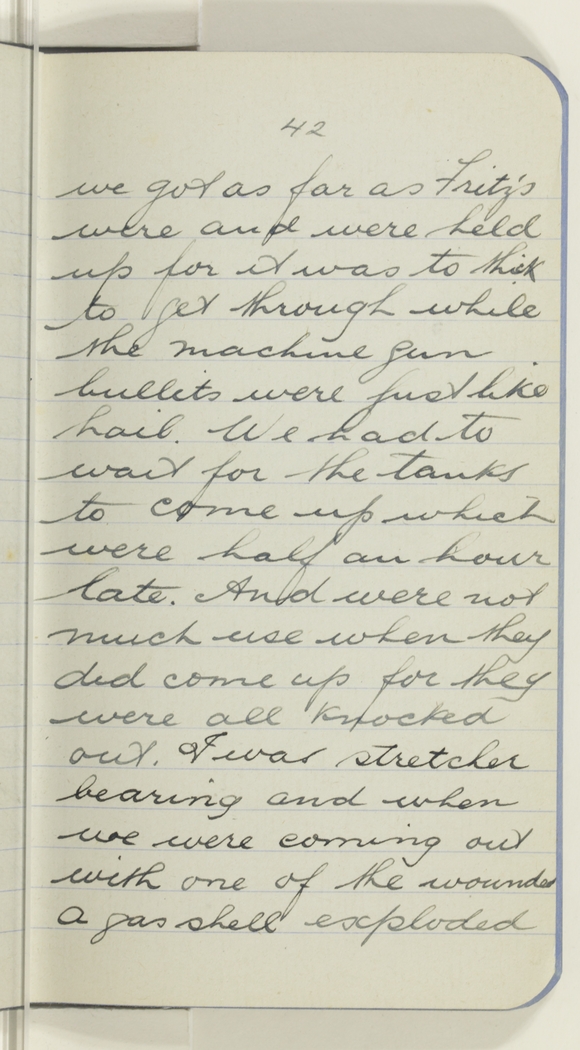 42
we got as far as Fritz's
were and were held
up for it was to thick
to get through while
the machine gun
bullits were just like
hail. We had to
wait for the tanks
to come up which
were half an hour
late. And were not
much use when they
did come up for they
were all knocked
out. I was stretcher
bearing and when
we were coming out
with one of the wounded
a gas shell exploded